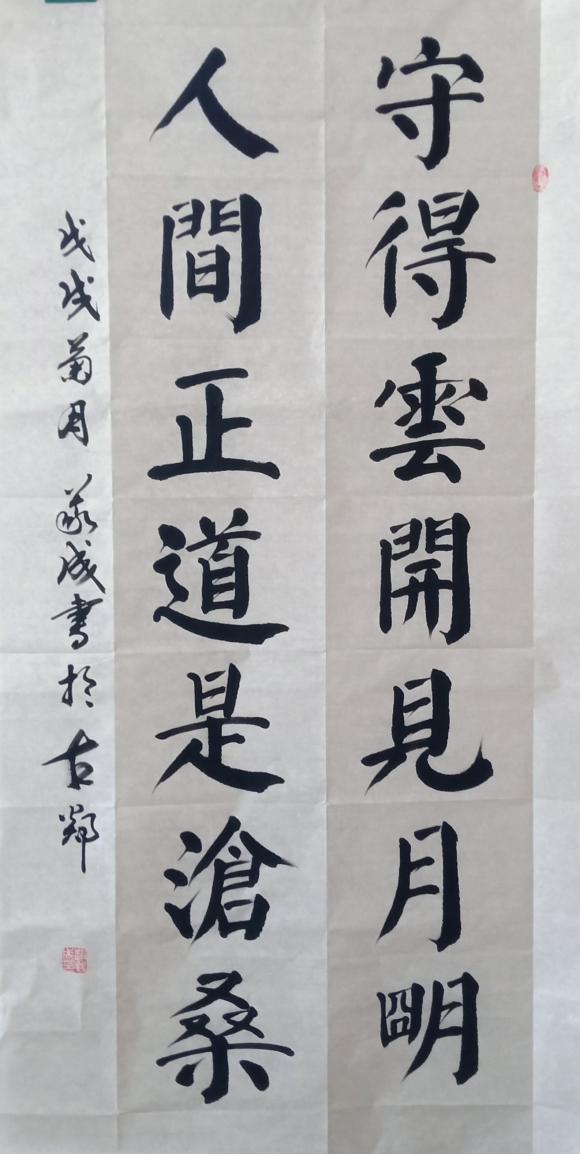 守得雲開見月明
人間正道是滄桑
戊戌菊月義成書於古鄴